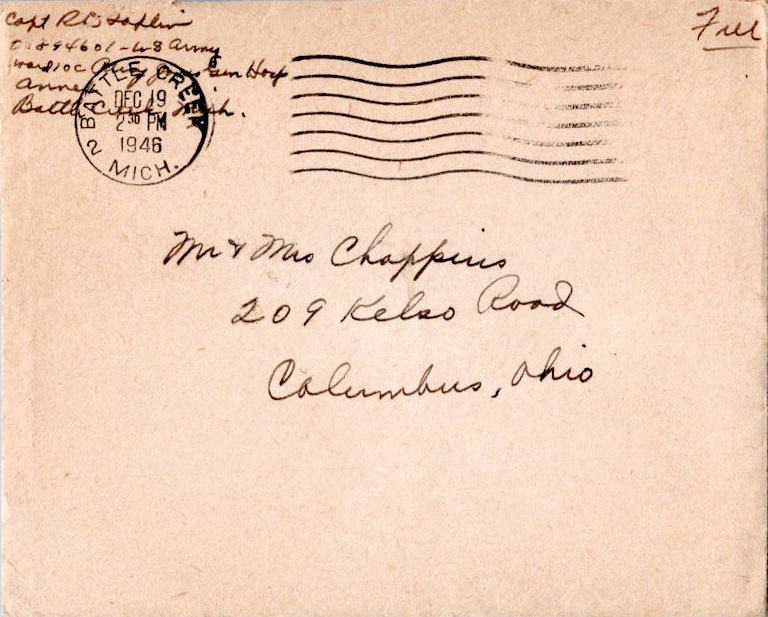 Capt R B
Free
01894601 - US Army
Ward 10C Gen Hosp
Annex
Battle Creek, Mich.
BATTLE CREEK
DEC 19
2 30 PM
1946
2 MICH.
Mr & Mrs Chappius
209 Kelso Road
Columbus, Ohio